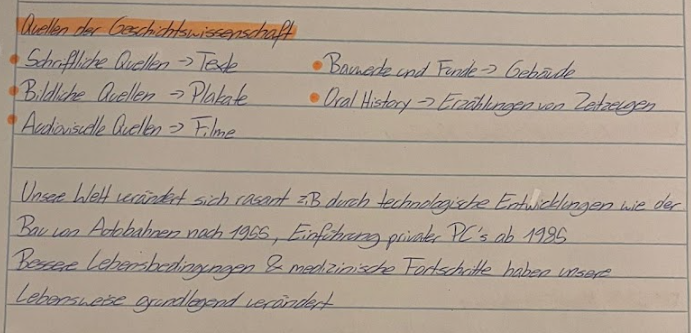 Quellen der Geschichtswissenschaft
• Schriftliche Quellen → Texte
• Bauwerke und Funde → Gebäude
• Bildliche Quellen → Plakate
• Oral History → Erzählungen von Zeitzeugen
• Audiovisuelle Quellen → Filme
Unsere Welt verändert sich rasant z.B durch technologische Entwicklungen wie der
Bau von Autobahnen nach 1955, Einführung privater PC's ab 1985
Bessere Lebensbedingungen & medizinische Fortschritte haben unsere
Lebensweise grundlegend verändert